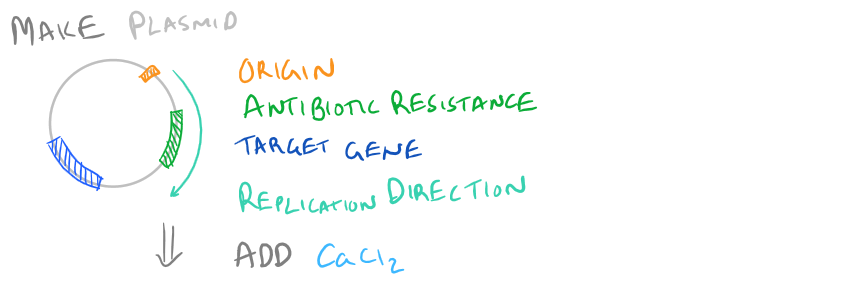 MAKE PLASMID
ORIGIN
ANTIBIOTIC RESISTANCE
TARGET GENE
REPLICATION DIRECTION
ADD CaCl2